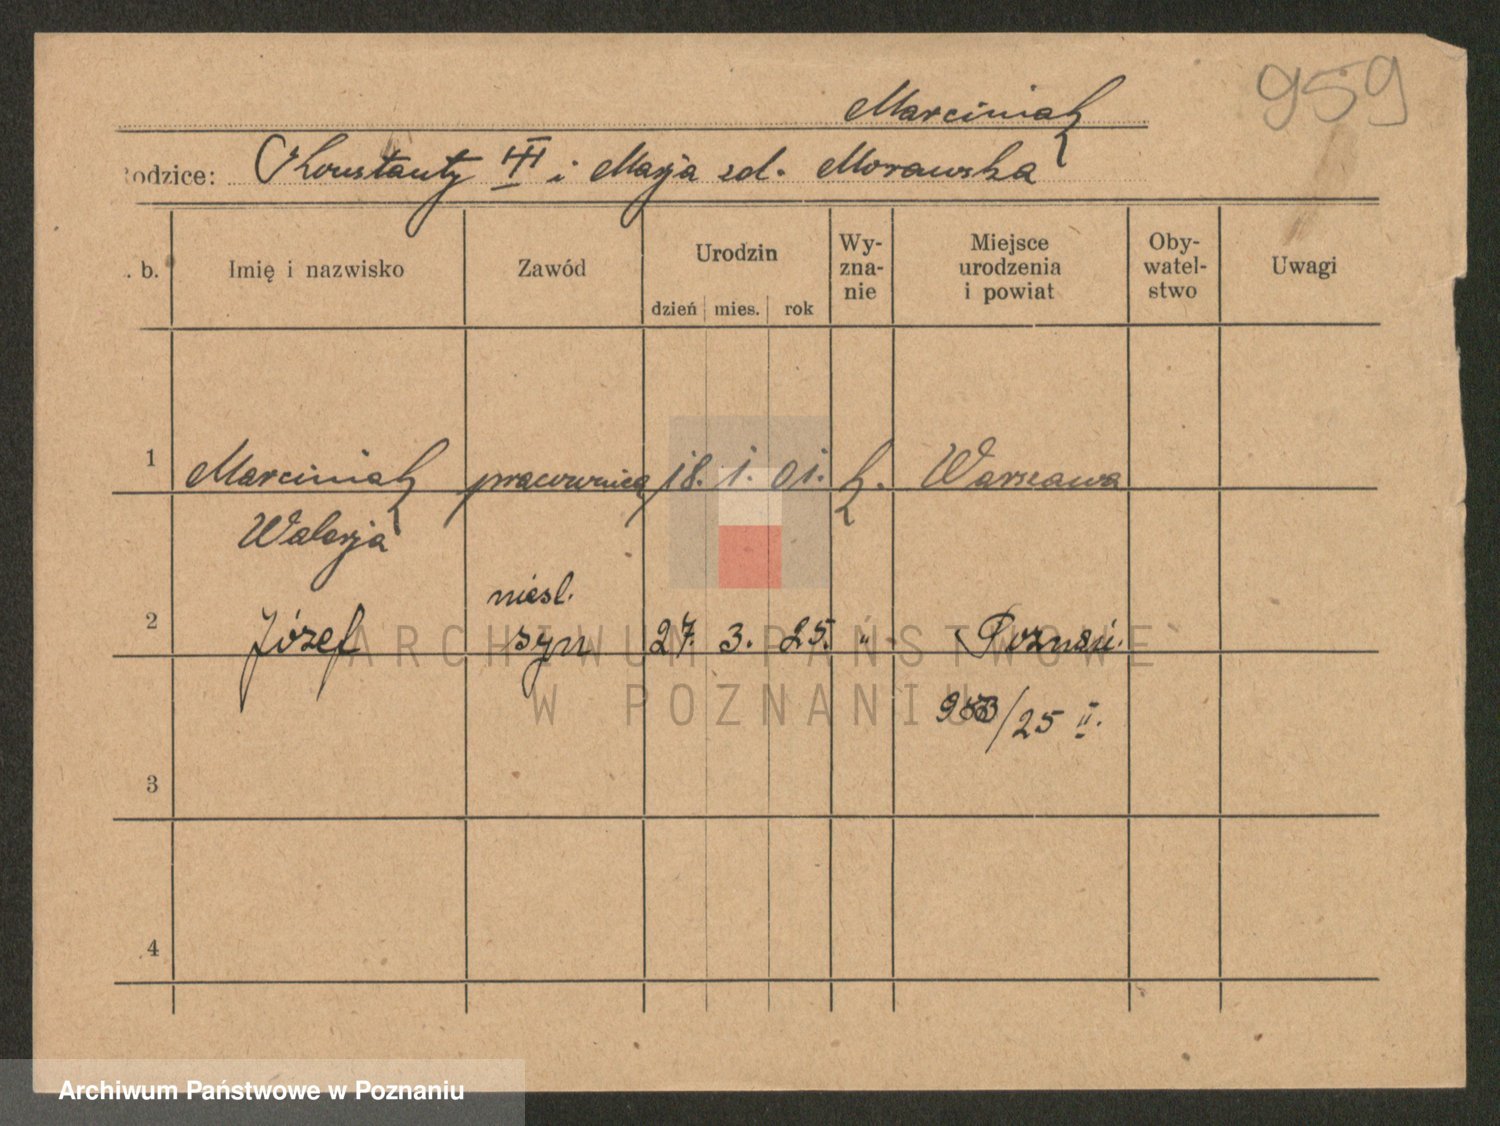 959
Marciniak
Rodzice: Konstanty III i Marja zd. Morawska
. b. Imię i nazwisko Zawód Urodzin dzień mies. rok Wy-zna-nie Miejsce urodzenia i powiat Oby-watel-stwo Uwagi
1 Marciniak pracownica 18. 1. 01. k. Warszawa
Walerja
niesl.
2 Józef syn 27. 3. 25. " Poznań.
/25 II.
3
4
ARCHIWUM PAŃSTWOWE
W POZNANIU
Archiwum Państwowe w Poznaniu